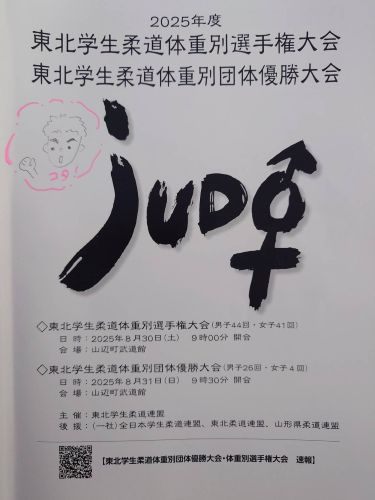 2025年度
東北学生柔道体重別選手権大会
東北学生柔道体重別団体優勝大会
コタ!
judo
◇東北学生柔道体重別選手権大会(男子44回・女子41回)
日 時:2025年8月30日(土) 9時00分 開会
会 場:山辺町武道館
◇東北学生柔道体重別団体優勝大会(男子26回・女子4回)
日 時:2025年8月31日(日) 9時30分 開会
会 場:山辺町武道館
主 催:東北学生柔道連盟
後 援:(一社)全日本学生柔道連盟、東北柔道連盟、山形県柔道連盟
【東北学生柔道体重別団体優勝大会・体重別選手権大会 速報】